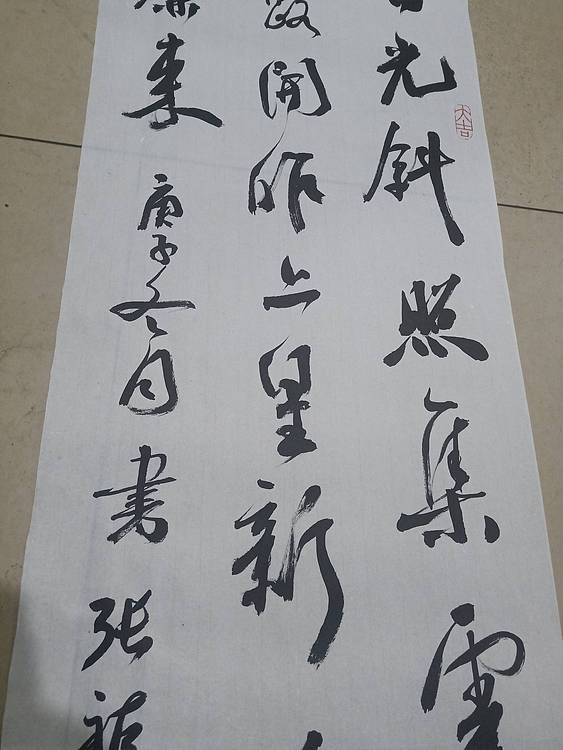 光斜照集
開昨上皇新
来
庚子冬月書张
大吉